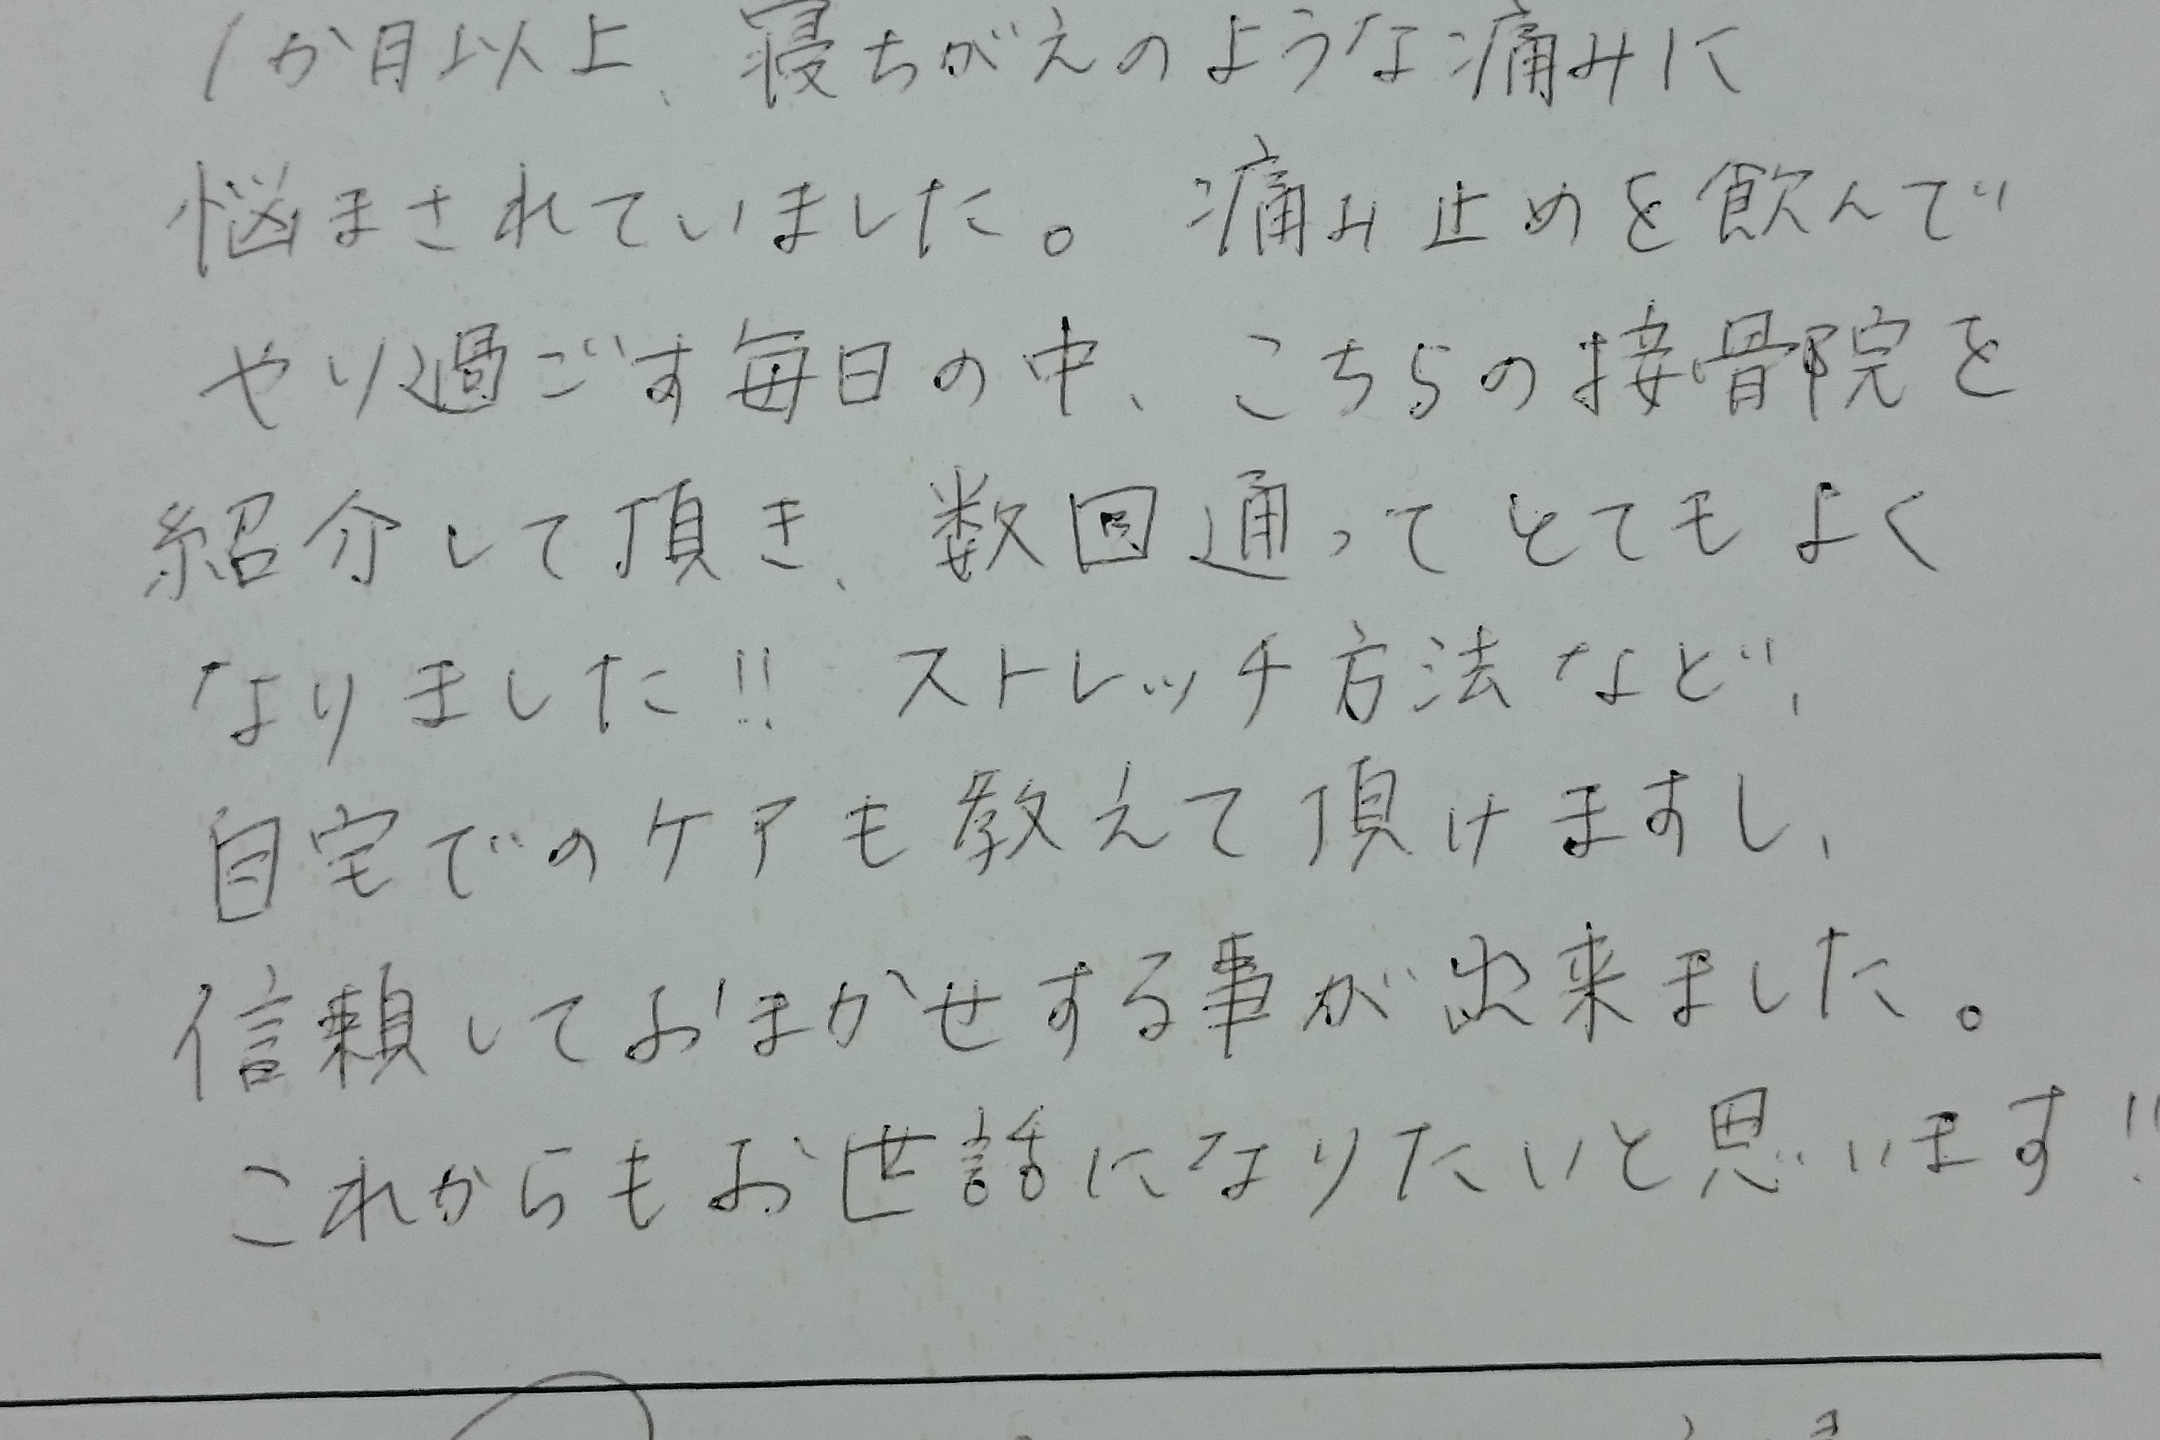 1か月以上、寝ちがえのような痛みに
悩まされていました。痛み止めを飲んで
やり過ごす毎日の中、こちらの接骨院を
紹介して頂き、数回通ってとてもよく
なりました!! ストレッチ方法など、
自宅でのケアも教えて頂けますし、
信頼しておまかせする事が出来ました。
これからもお世話になりたいと思います!!